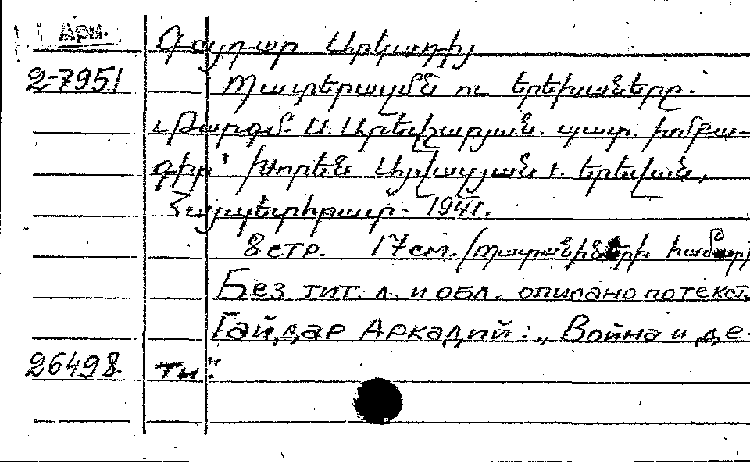 Арм.
Գայդար Արկադիյ
2-7951 Պատերազմն ու երեխաները.
Թարգմ. Ա. Արելշատյան. պատ. խմբա-
գիր՝ Խորեն Այվազյան. Երևան,
Հայպետհրատ- 1941.
8 стр. 17 см. (Պատանիների համար)
Без тит. л. и обл. описано по текст.
Гайдар Аркадий: „Война и де-
26498. ти".